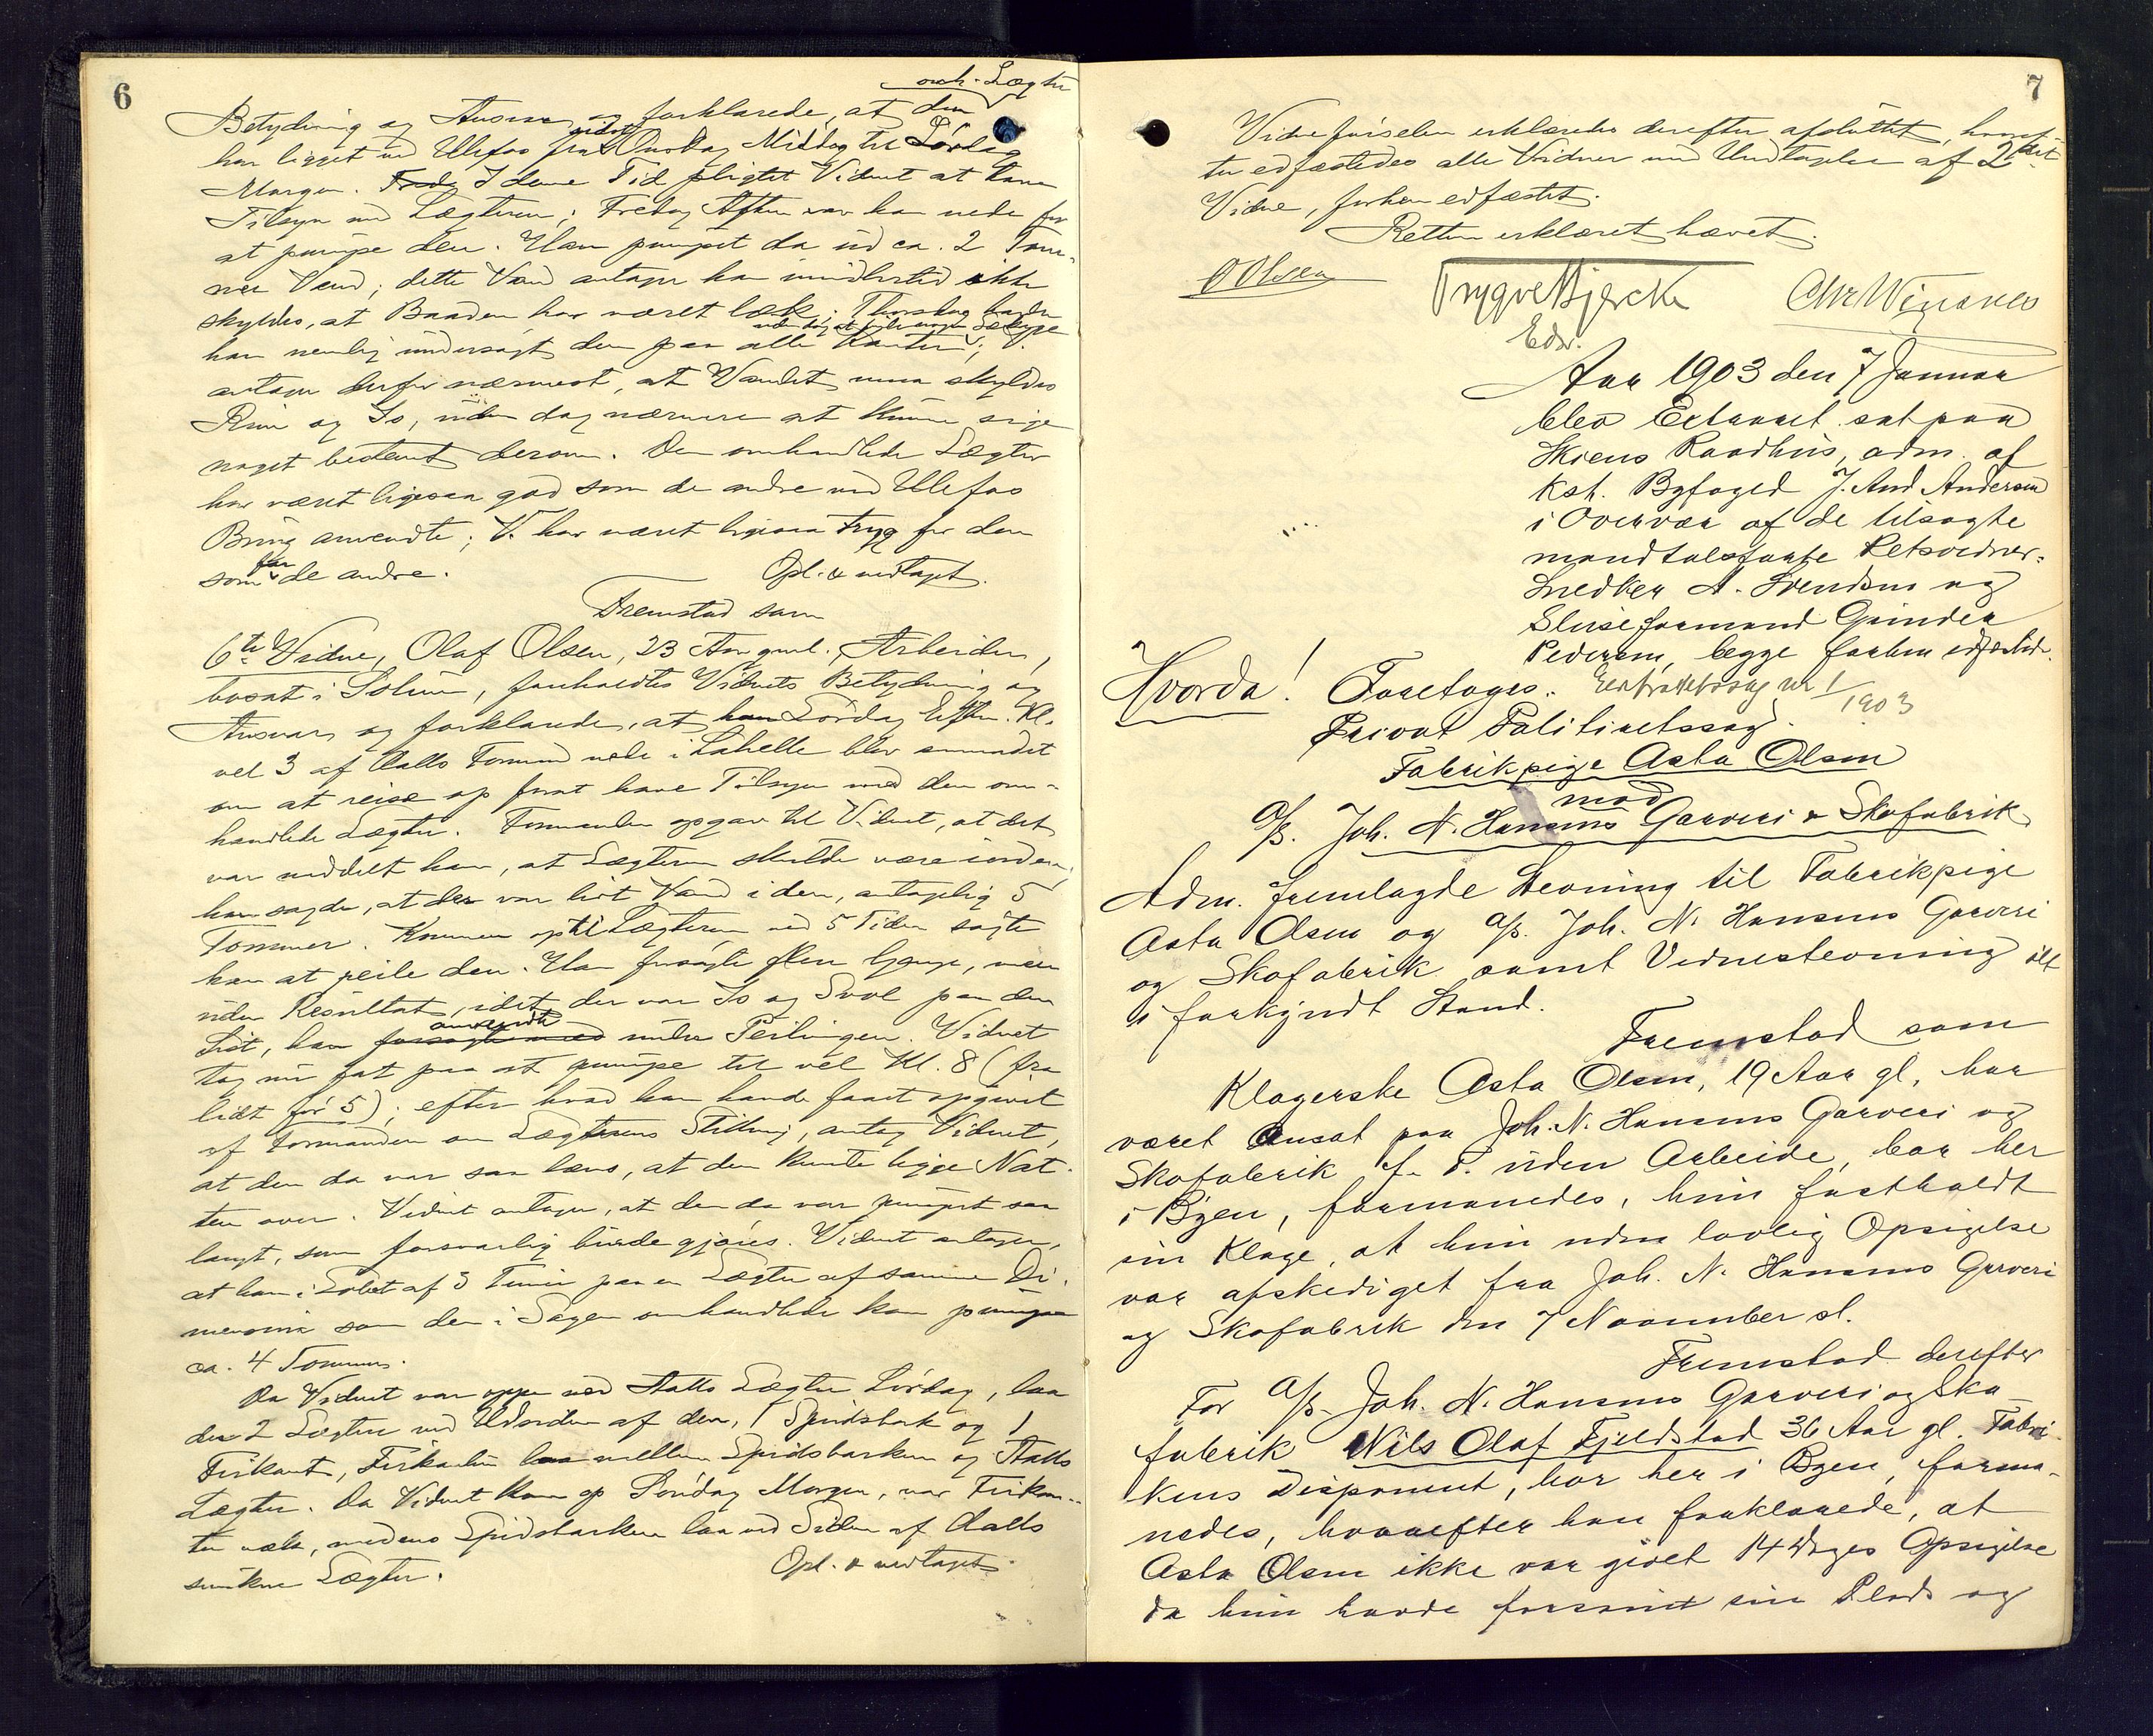 6
omh. Lægter
Betydning og Ansvar og forklarede, at den
har ligget ved Ulefos sidst fra Onsdag Middag til Lørdag
Morgen. I denne Tid pligtet Vidnet at have
Tilsyn med Lægteren; Fredag Aften var han nede for
at pumpe den. Han pumpet da ud ca. 2 Tom-
mer Vand; dette Vand antager han imidlertid ikke
skyldes, at Baaden har været læk; Thorsdag havde
han nemlig undersøgt den paa alle Kanter uden dog at finde nogen Lækage; V.
antager derfor nærmest, at Vandet maa skyldes
Rim og Is, uden dog nærmere at kunne sige
noget bestemt derom. Den omhandlede Lægter
har været ligesaa god som de andre ved Ulefos
Brug anvendte; V. har været ligesaa tryg for den
som for de andre. Opl. & vedtaget.
Fremstod som
6te Vidne, Olaf Olsen, 23 Aar gml., Arbeider,
bosat i Solum, foreholdtes Vidnets Betydning og
Ansvar og forklarede, at han Lørdag Efterm. Kl.
vel 3 af Aalls Formand nede i Lahelle blev anmodet
om at reise op forat have Tilsyn med den om-
handlede Lægter. Formanden opgav til Vidnet, at det
var meddelt ham, at Lægteren skulde være i orden,
han sagde, at der var lidt Vand i den, antagelig 5
Tommer. Kommen op til Lægteren ved 5 Tiden søgte
han at peile den. Han forsøgte flere Gange, men
uden Resultat, idet der var Is og Svol paa den
List, han anvendte under Peilingen. Vidnet
tog nu fat paa at pumpe til vel Kl. 8 (fra
lidt før 5); efter hvad han havde faaet opgivet
af Formanden om Lægterens Stilling, antog Vidnet,
at den da var saa læns, at den kunde ligge Nat-
ten over. Vidnet antager, at den da var pumpet saa
langt, som forsvarlig burde gjøres. Vidnet antager,
at han i Løbet af 3 Timer paa en Lægter af samme Di-
mension som den i Sagen omhandlede kan pumpe
ca. 4 Tommer.
Da Vidnet var oppe ved Aalls Lægter Lørdag, laa
der 2 Lægtere ved Udsiden af den, 1 Spidsbark og 1
Firkant, Firkanten laa mellem Spidsbarken og Aalls
Lægter. Da Vidnet kom op Søndag Morgen, var Firkan-
ten væk, medens Spidsbarken laa ved Siden af Aalls
sunkne Lægter. Opl. & vedtaget.
7
Vidneførselen erklæredes derefter afsluttet, hvoref-
ter edfæstedes alle Vidner med Undtagelse af 2det
Vidne, forhen edfæstet.
Retten erklæret hævet.
O Olsen Trygve Bjercke Chr Winsnes
Edv.
Aar 1903 den 7 Januar
blev Extraret sat paa
Skiens Raadhus, adm. af
Kst. Byfoged J. And Andersen
i Overvær af de tilsagte
mandtalsførte Retsvidner:
Snedker A. Svendsen og
Sluseformand Gunder
Pedersen, begge forhen edfæstede.
Hvorda! Foretoges. Extraretssag nr 1/1903
Privat Politiretssag.
Fabrikpige Asta Olsen
mod
A/S. Joh. N. Hansens Garveri & Skofabrik
Adm. fremlagde Stevning til Fabrikpige
Asta Olsen og A/S. Joh. N. Hansens Garveri
og Skofabrik samt Vidnestevning alt
i forkyndt Stand.
Fremstod som
Klagerske Asta Olsen, 19 Aar gl, har
været Ansat paa Joh. N. Hansens Garveri og
Skofabrik f. T. uden Arbeide, bor her
i Byen, formanedes, hun fastholdt
sin Klage, at hun uden lovlig Opsigelse
var afskediget fra Joh. N. Hansens Garveri
og Skofabrik den 7 November sl.
Fremstod derefter
For A/S. Joh. N. Hansens Garveri og Sko-
fabrik Nils Olaf Fjeldstad 36 Aar gl. Fabri-
kens Disponent, bor her i Byen, forma-
nedes, hvorefter han forklarede, at
Asta Olsen ikke var givet 14 Dages Opsigelse
da hun havde forsømt sin Plads og